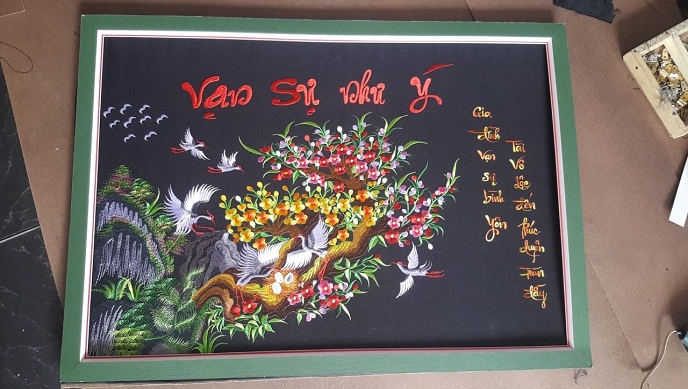 Vạn Sự như Ý
Gia đình Vạn sự bình yên
Tài Vô lộc đến phúc duyên tràn đầy